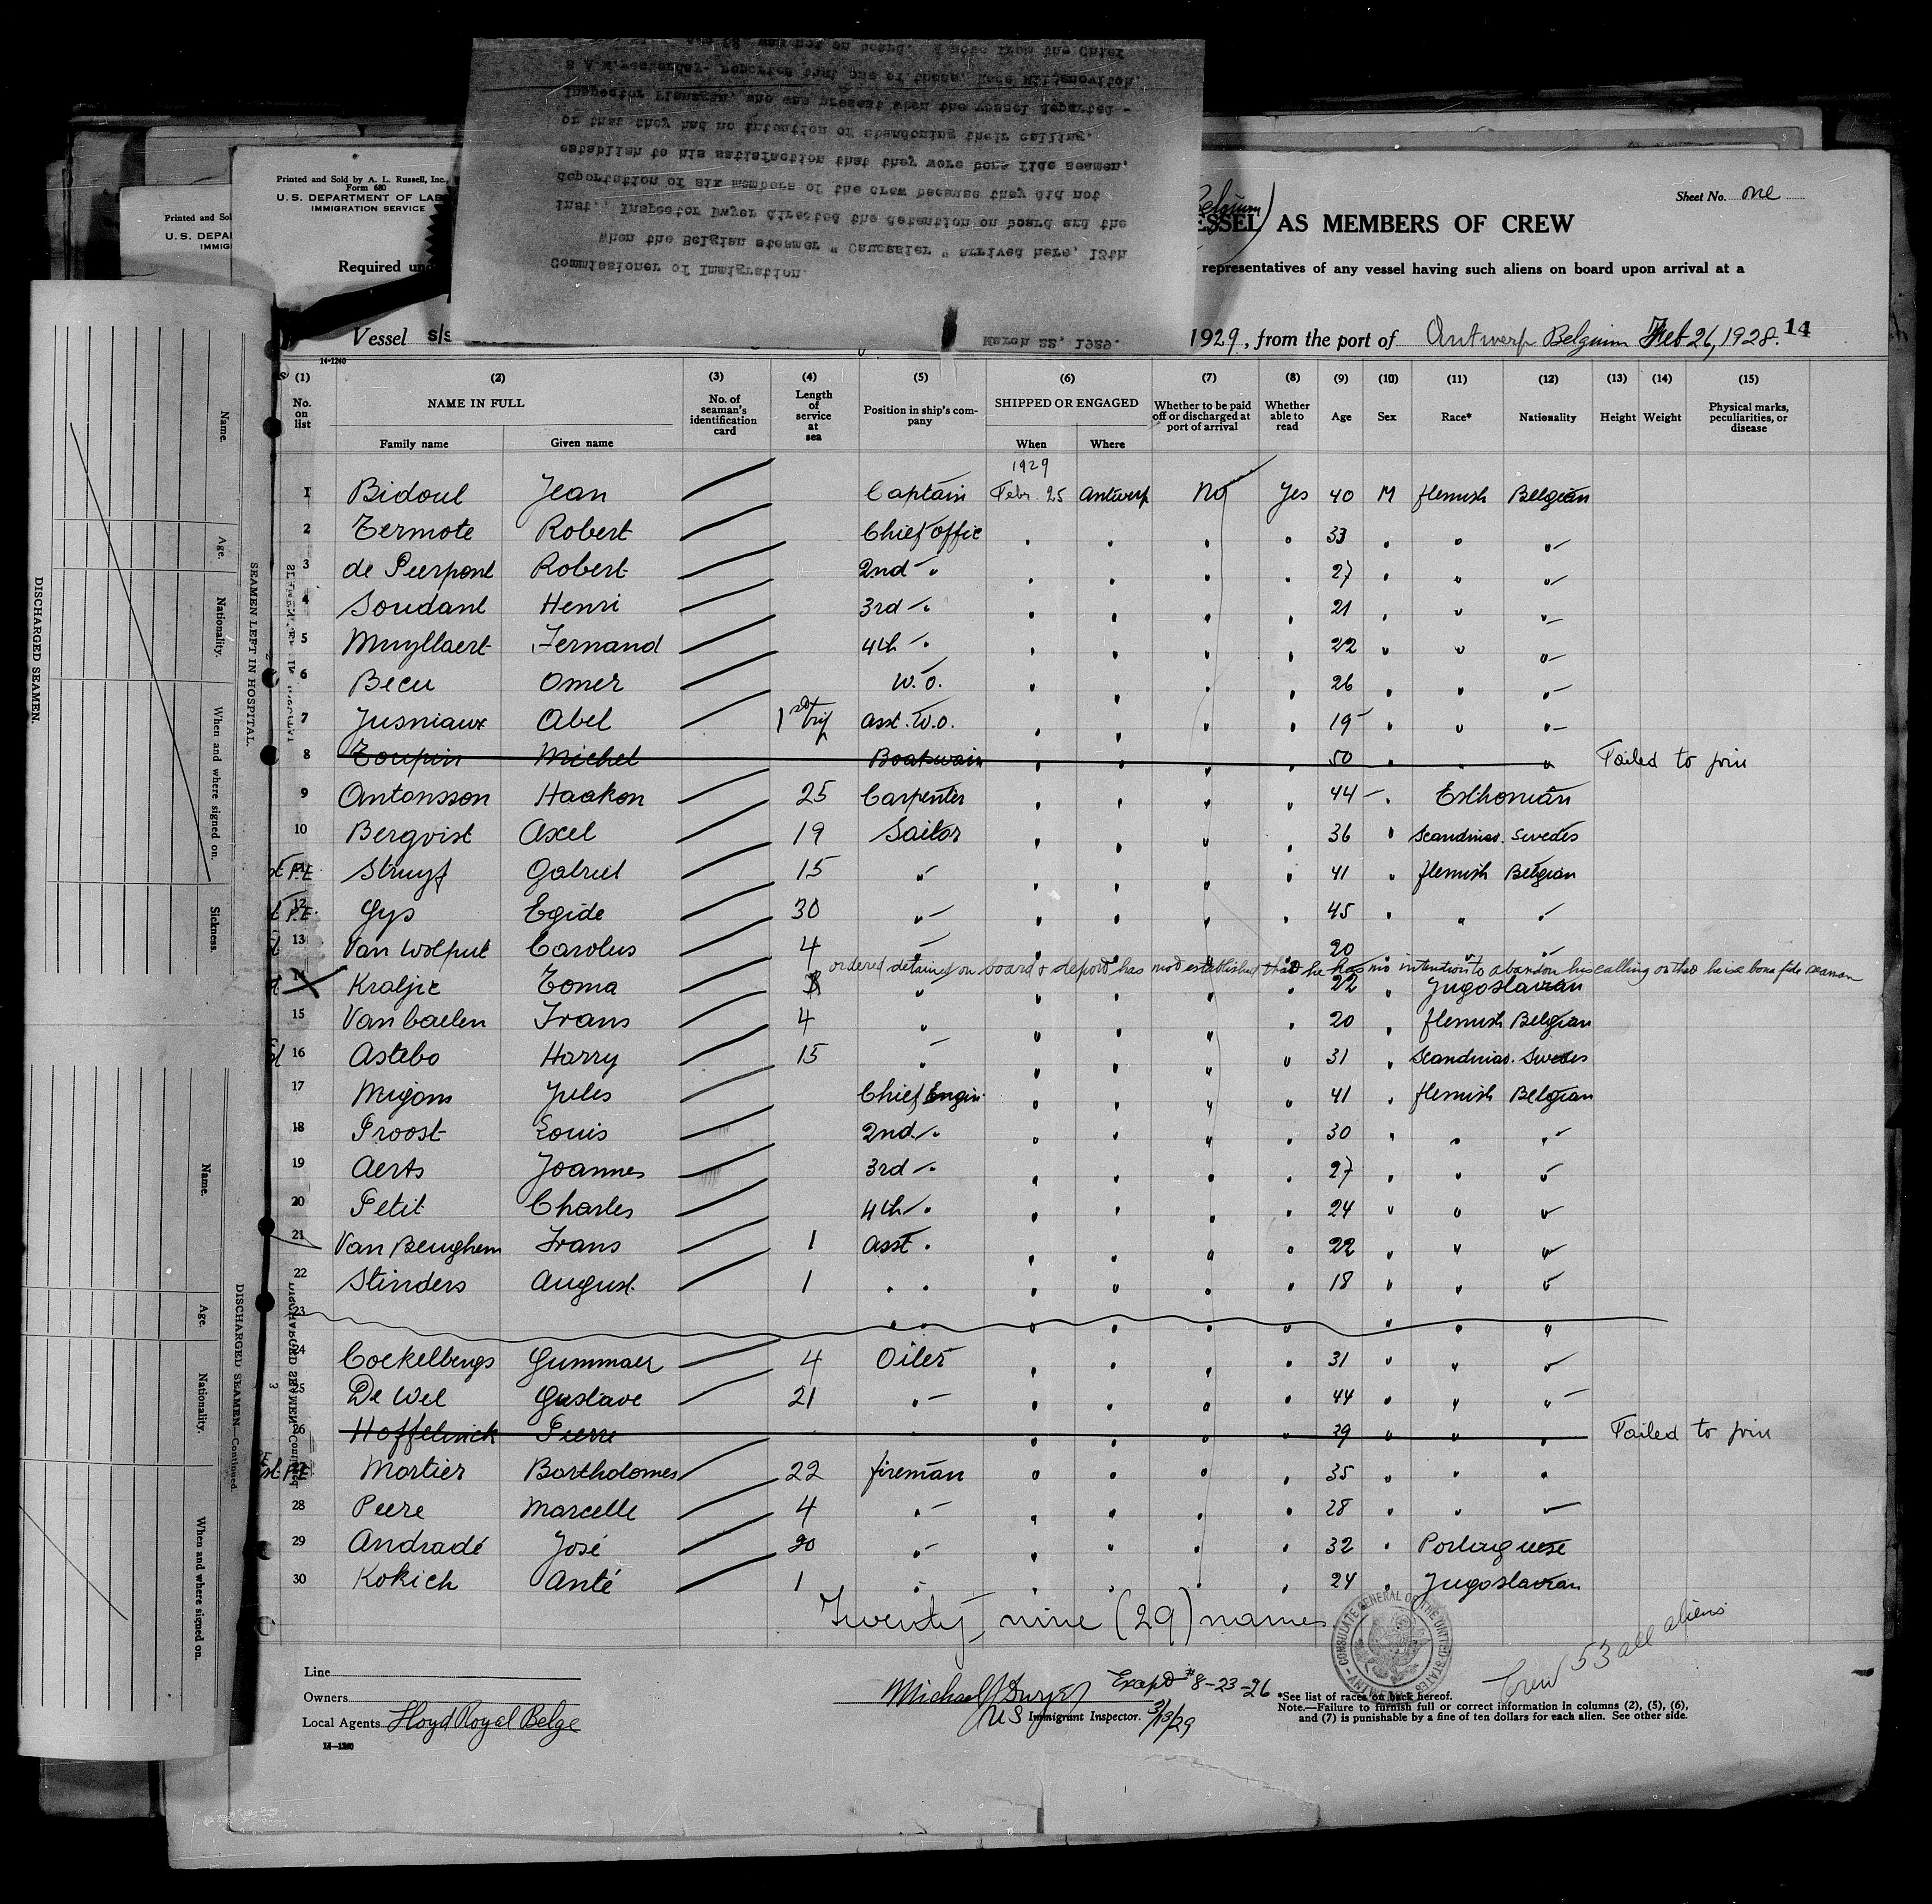 Printed and Sold by A. L. Russell, Inc.,
Form 680
U. S. DEPARTMENT OF LAB
IMMIGRATION SERVICE
Printed and Sol
U. S. DEPA
IMMIG
Required un
Sheet No. one
Belgium)
ESSEL AS MEMBERS OF CREW
representatives of any vessel having such aliens on board upon arrival at a
Vessel s/s
1929, from the port of Antwerp Belgium Feb 26, 1928. 14
March 22, 1929.
Commissioner of Immigration.
When the Belgian steamer " Caucasier " arrived here, 13th
inst., Inspector Dwyer directed the detention on board and the
deportation of six members of the crew because they did not
establish to his satisfaction that they were bona fide seamen,
or that they had no intention of abandoning their calling.
Inspector Flanagan, who was present when the vessel departed -
8 A.M. yesterday- reported that one of these, Mate
was not on board. A note from the Chief
14-1240
(1) (2) (3) (4) (5) (6) (7) (8) (9) (10) (11) (12) (13) (14) (15)
No. on list NAME IN FULL No. of seaman's identification card Length of service at sea Position in ship's company SHIPPED OR ENGAGED Whether to be paid off or discharged at port of arrival Whether able to read Age Sex Race* Nationality Height Weight Physical marks, peculiarities, or disease
Family name Given name When Where
1929
1 Bidoul Jean Captain Febr. 25 Antwerp No Yes 40 M flemish Belgian
2 Termote Robert Chief offic 33
3 de Pierpont Robert 2nd " 27
4 Soudant Henri 3rd " 21
5 Muyllaert Fernand 4th " 22
6 Becu Omer W.O. 26
7 Jusniaux Abel 1st trip asst. W.O. 19
8 Toupin Michel Boatswain 50 Failed to join
9 Antonsson Haakon 25 Carpenter 44 Esthonian
10 Bergvist Axel 19 Sailor 36 Scandinav. Swedes
11 P.E. Struyf Gabriel 15 " 41 flemish Belgian
12 P.E. Gys Egide 30 " 45
13 Van Wolput Carolus 4 " 20
ordered detained on board & deport has not established that he has no intention to abandon his calling or that he is a bona fide seaman
14 Kraljic Toma " 22 Jugoslavian
15 Van Caelen Frans 4 " 20 flemish Belgian
16 Astebo Harry 15 " 31 Scandinav. Swedes
17 Migom Jules Chief Engin. 41 flemish Belgian
18 Proost Louis 2nd " 30
19 Aerts Joannes 3rd " 27
20 Petit Charles 4th " 24
21 Van Beughem Frans 1 asst " 22
22 Stinders August 1 " " 18
23
24 Cockelbergs Gummaer 4 Oiler 31
25 De Wel Gustave 21 " 44
26 Hoffelinck Pierre 39 Failed to join
27 P.E. Mortier Bartholomes 22 fireman 35
28 Peere Marcelle 4 " 28
29 Andradé José 20 " 32 Portuguese
30 Kokich Anté 1 " 24 Jugoslavian
Twenty nine (29) names
CONSULATE GENERAL OF THE UNITED STATES
Crew 53 all aliens
Line
Owners
Local Agents Lloyd Royal Belge
14-1240
Michael J Dwyer
US Immigrant Inspector. 3/13/29
8-23-26
*See list of races on back hereof.
Note.—Failure to furnish full or correct information in columns (2), (5), (6),
and (7) is punishable by a fine of ten dollars for each alien. See other side.
DISCHARGED SEAMEN.
SEAMEN LEFT IN HOSPITAL.
Name.
Age.
Nationality.
When and where signed on.
Sickness.
DISCHARGED SEAMEN—Continued.
Name.
Age.
Nationality.
When and where signed on.